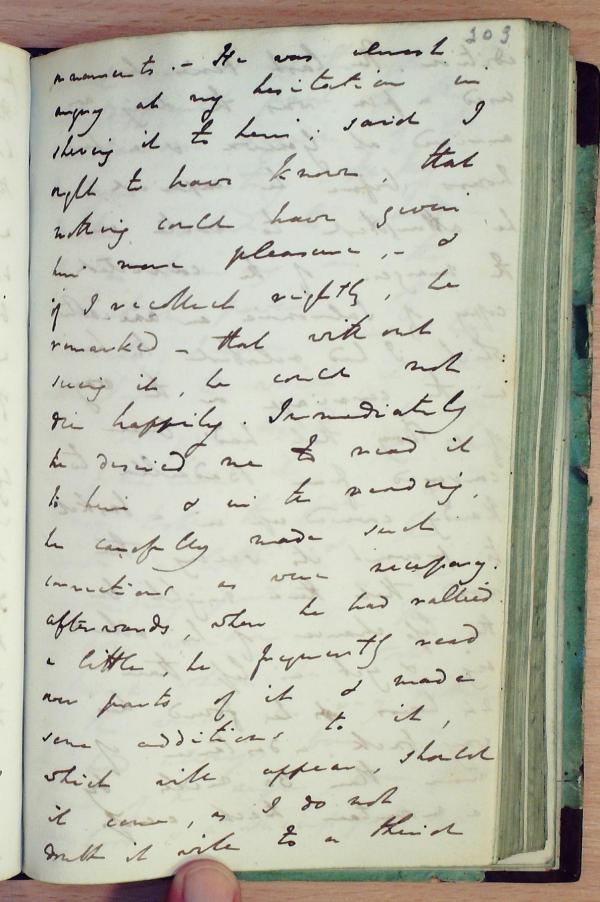 203
ornaments. - He was almost
angry at my hesitation in
shewing it to him; said I
ought to have known, that
nothing could have given
him more pleasure, - &
if I recollect rightly, he
remarked - that without
seeing it, he could not
die happily. Immediately
he desired me to read it
to him & in the reading,
he carefully made such
corrections as were necessary.
afterwards, when he had rallied
a little, he frequently read
over parts of it & made
some additions to it,
which will appear, should
it come, as I do not
doubt it will to a third